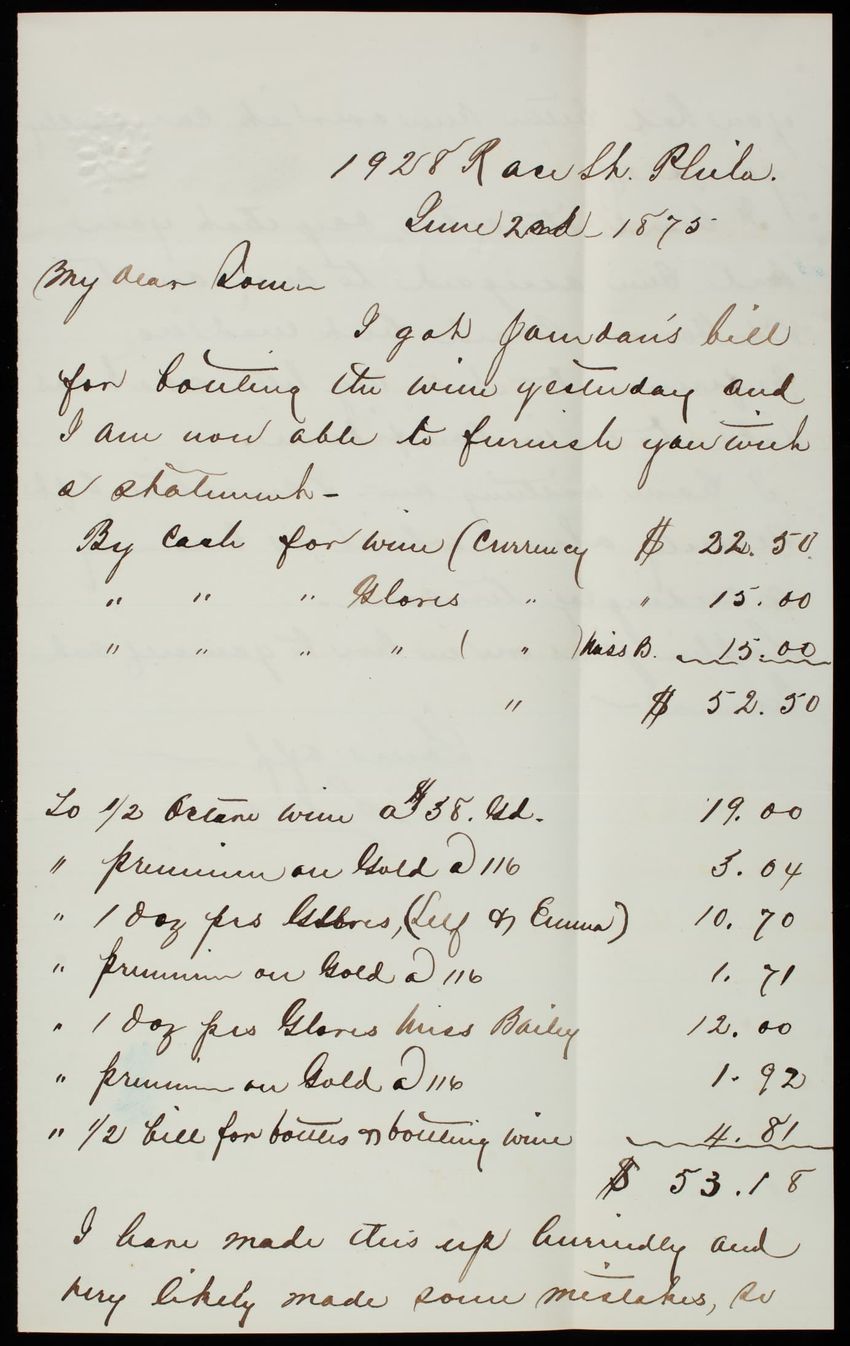 1928 Race St. Phila.
June 2nd 1875
My dear
I got Jourdan's bill
for bottling the wine yesterday and
I am now able to furnish you with
a statement-
By Cash for wine (Currency $ 22.50
" " " Gloves " " 15.00
" " " " ( " ) Miss B. 15.00
" $ 52.50
To 1/2 Octave wine a $38. Gd. 19.00
" premium on Gold a 116 3.04
" 1 doz prs Gloves, (Self & Emma) 10.70
" premium on Gold a 116 1.71
" 1 doz prs Gloves Miss Bailey 12.00
" premium on Gold a 116 1.92
" 1/2 bill for bottles & bottling wine 4.81
$ 53.18
I have made this up hurriedly and
very likely made some mistakes, so